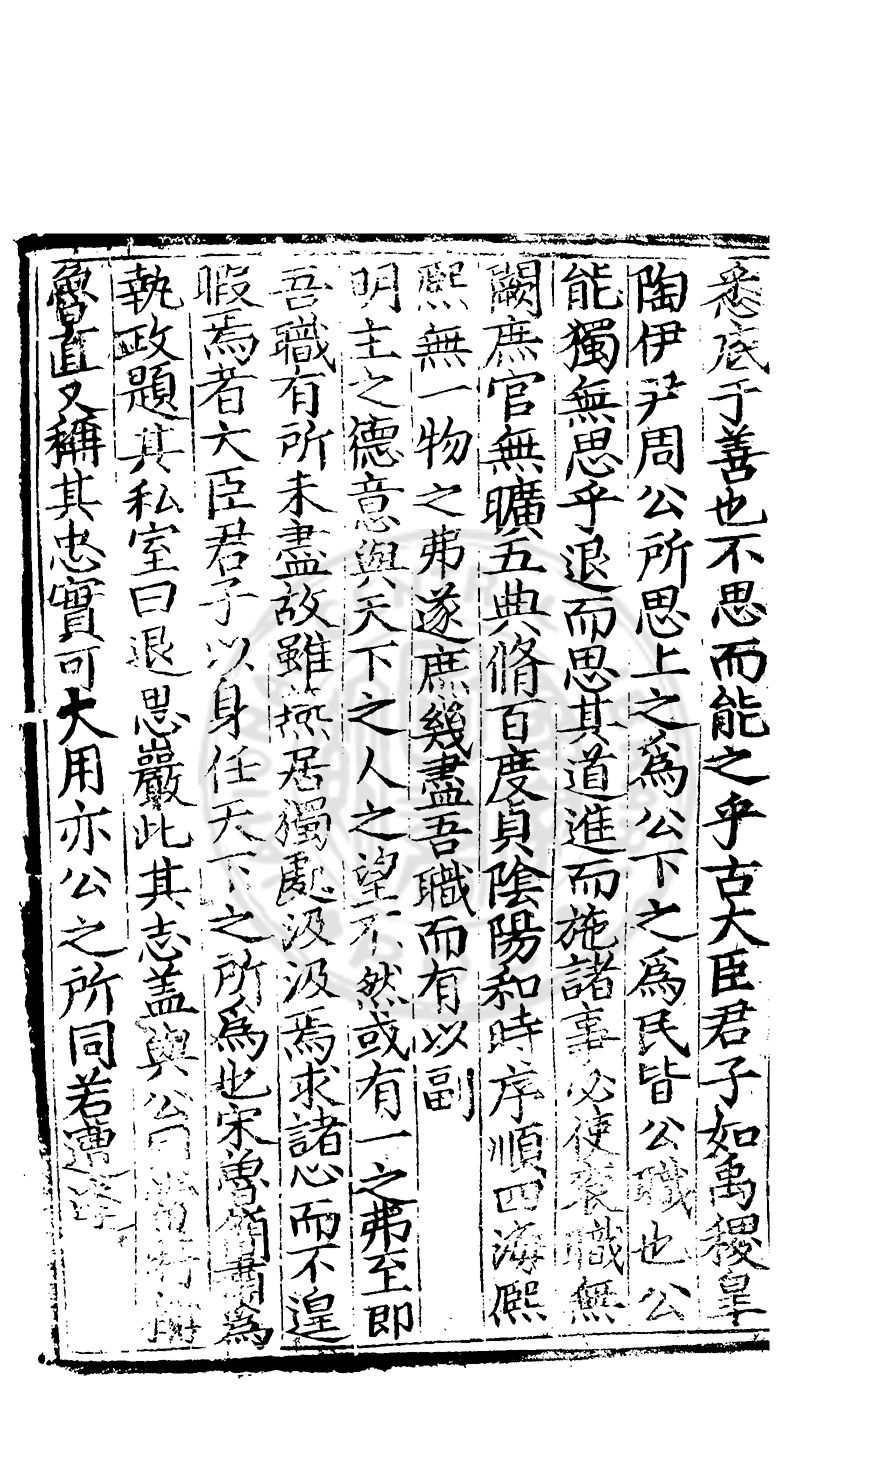 悉底于善也不思而能之乎古大臣君子如禹稷臯
陶伊尹周公所思上之爲公下之爲民皆公職也公
能獨無思乎退而思其道進而施諸事必使袞職無
闕庶官無曠五典脩百度貞陰陽和時序順四海熈
熈無一物之弗遂庶幾盡吾職而有以副
明主之德意與天下之人之望不然或有一之弗至即
吾職有所未盡故雖燕居獨處汲汲焉求諸心而不遑
暇焉者大臣君子以身任天下之所爲也宋魯簡肅爲
執政題其私室曰退思巖此其志盖與公同
魯直又稱其忠實可大用亦公之所同若遭